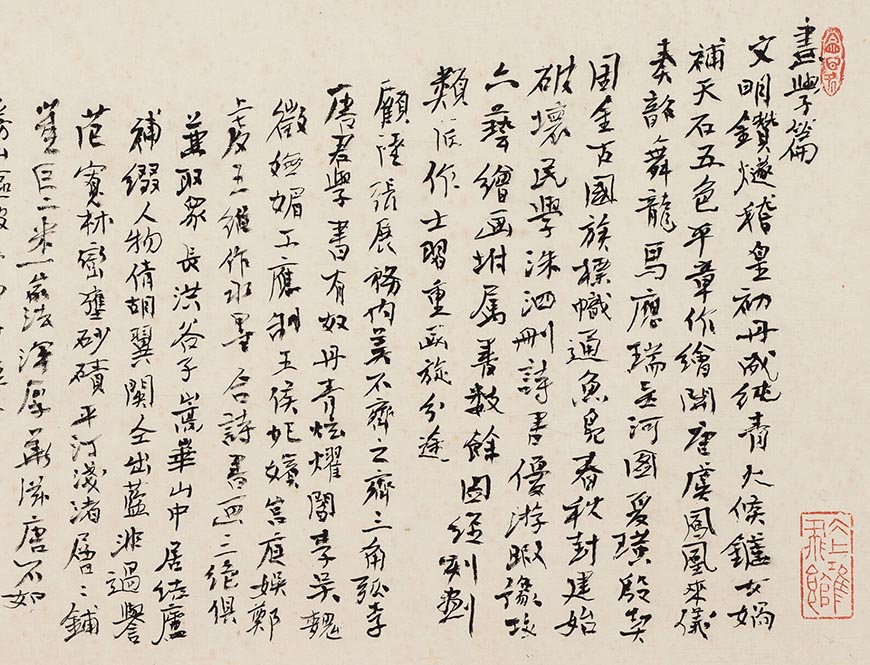 畫學篇
文明鑽燧稽皇初丹成純青火候鑪女媧
補天石五色平章作繪開唐虞鳳凰來儀
奏韶舞龍馬應瑞出河圖爰璜殷契
周金古國族標幟通魚鳧春秋封建始
破壞民學洙泗刪詩書優游暇豫攻
六藝繪画坿屬書數餘圖經刻劃
類匠作士習重畫旋分途
顧陸張展務內美不齊之齊三角弧李
唐君學書有奴丹青炫耀閻李吳魏
徵嫵媚工應制王侯妃嬪宮庭娛鄭
虔王維作水墨合詩書画三絕俱
兼取眾長洪谷子嵩華山中居結廬
補綴人物倩胡翼関仝出藍非過譽
范寬林巒壅砂磧平汀淺渚層〻鋪
董巨二米一家法渾厚華滋唐不如